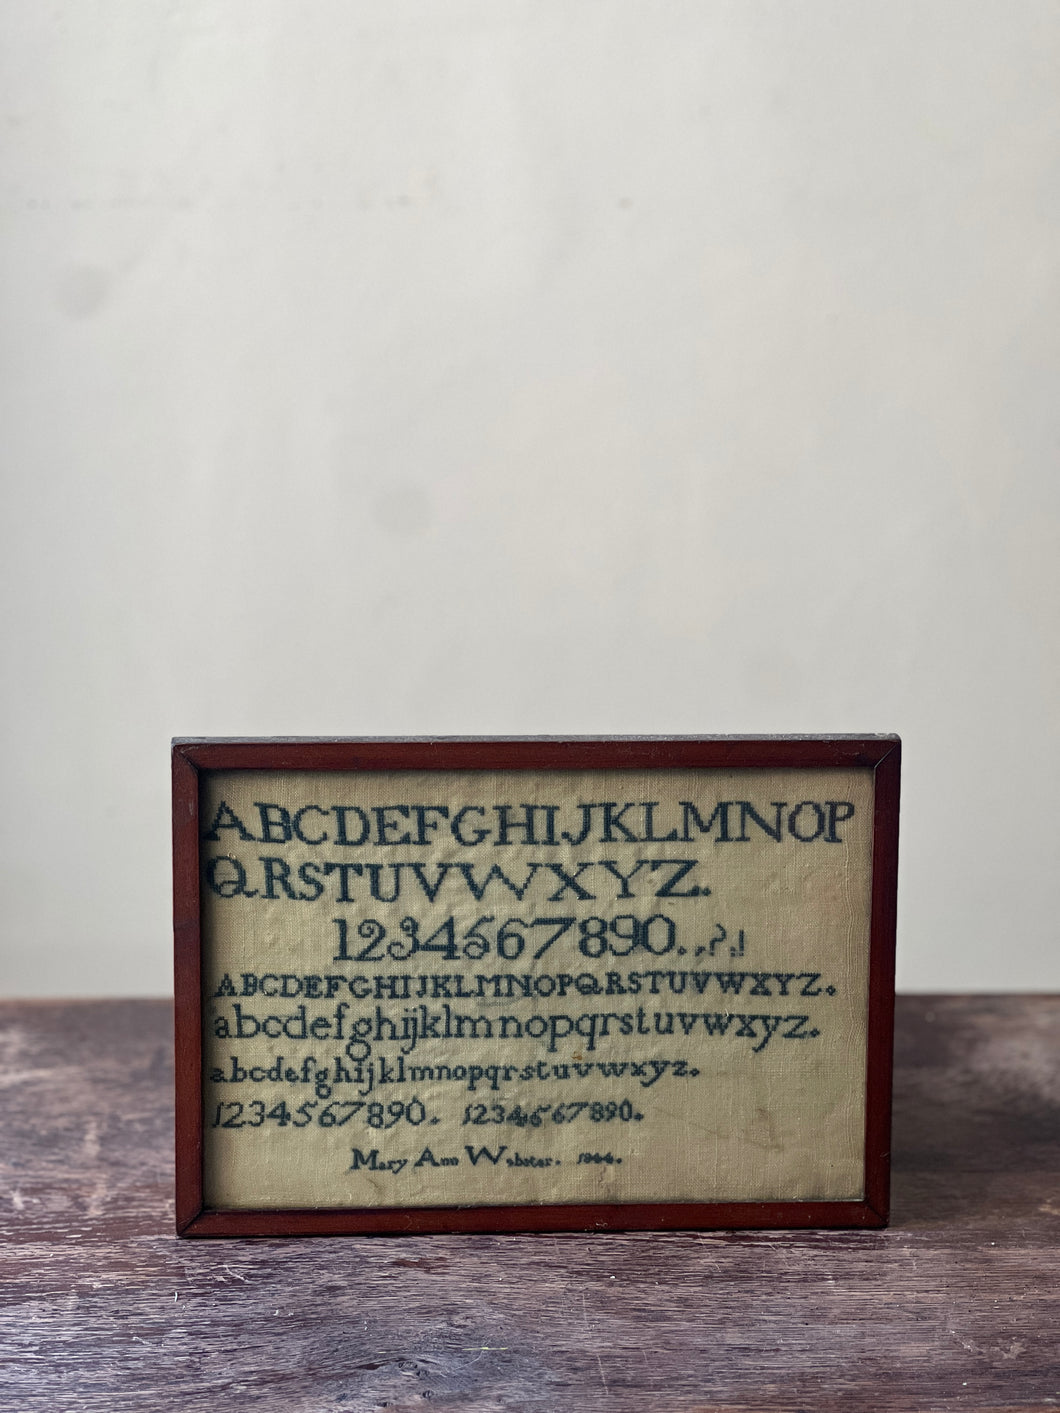 ABCDEFGHIJKLMNOP
QRSTUVWXYZ.
1234567890.,?;!
ABCDEFGHIJKLMNOPQRSTUVWXYZ.
abcdefghijklmnopqrstuvwxyz.
abcdefghijklmnopqrstuvwxyz.
1234567890. 1234567890.
Mary Ann Webster. 1844.